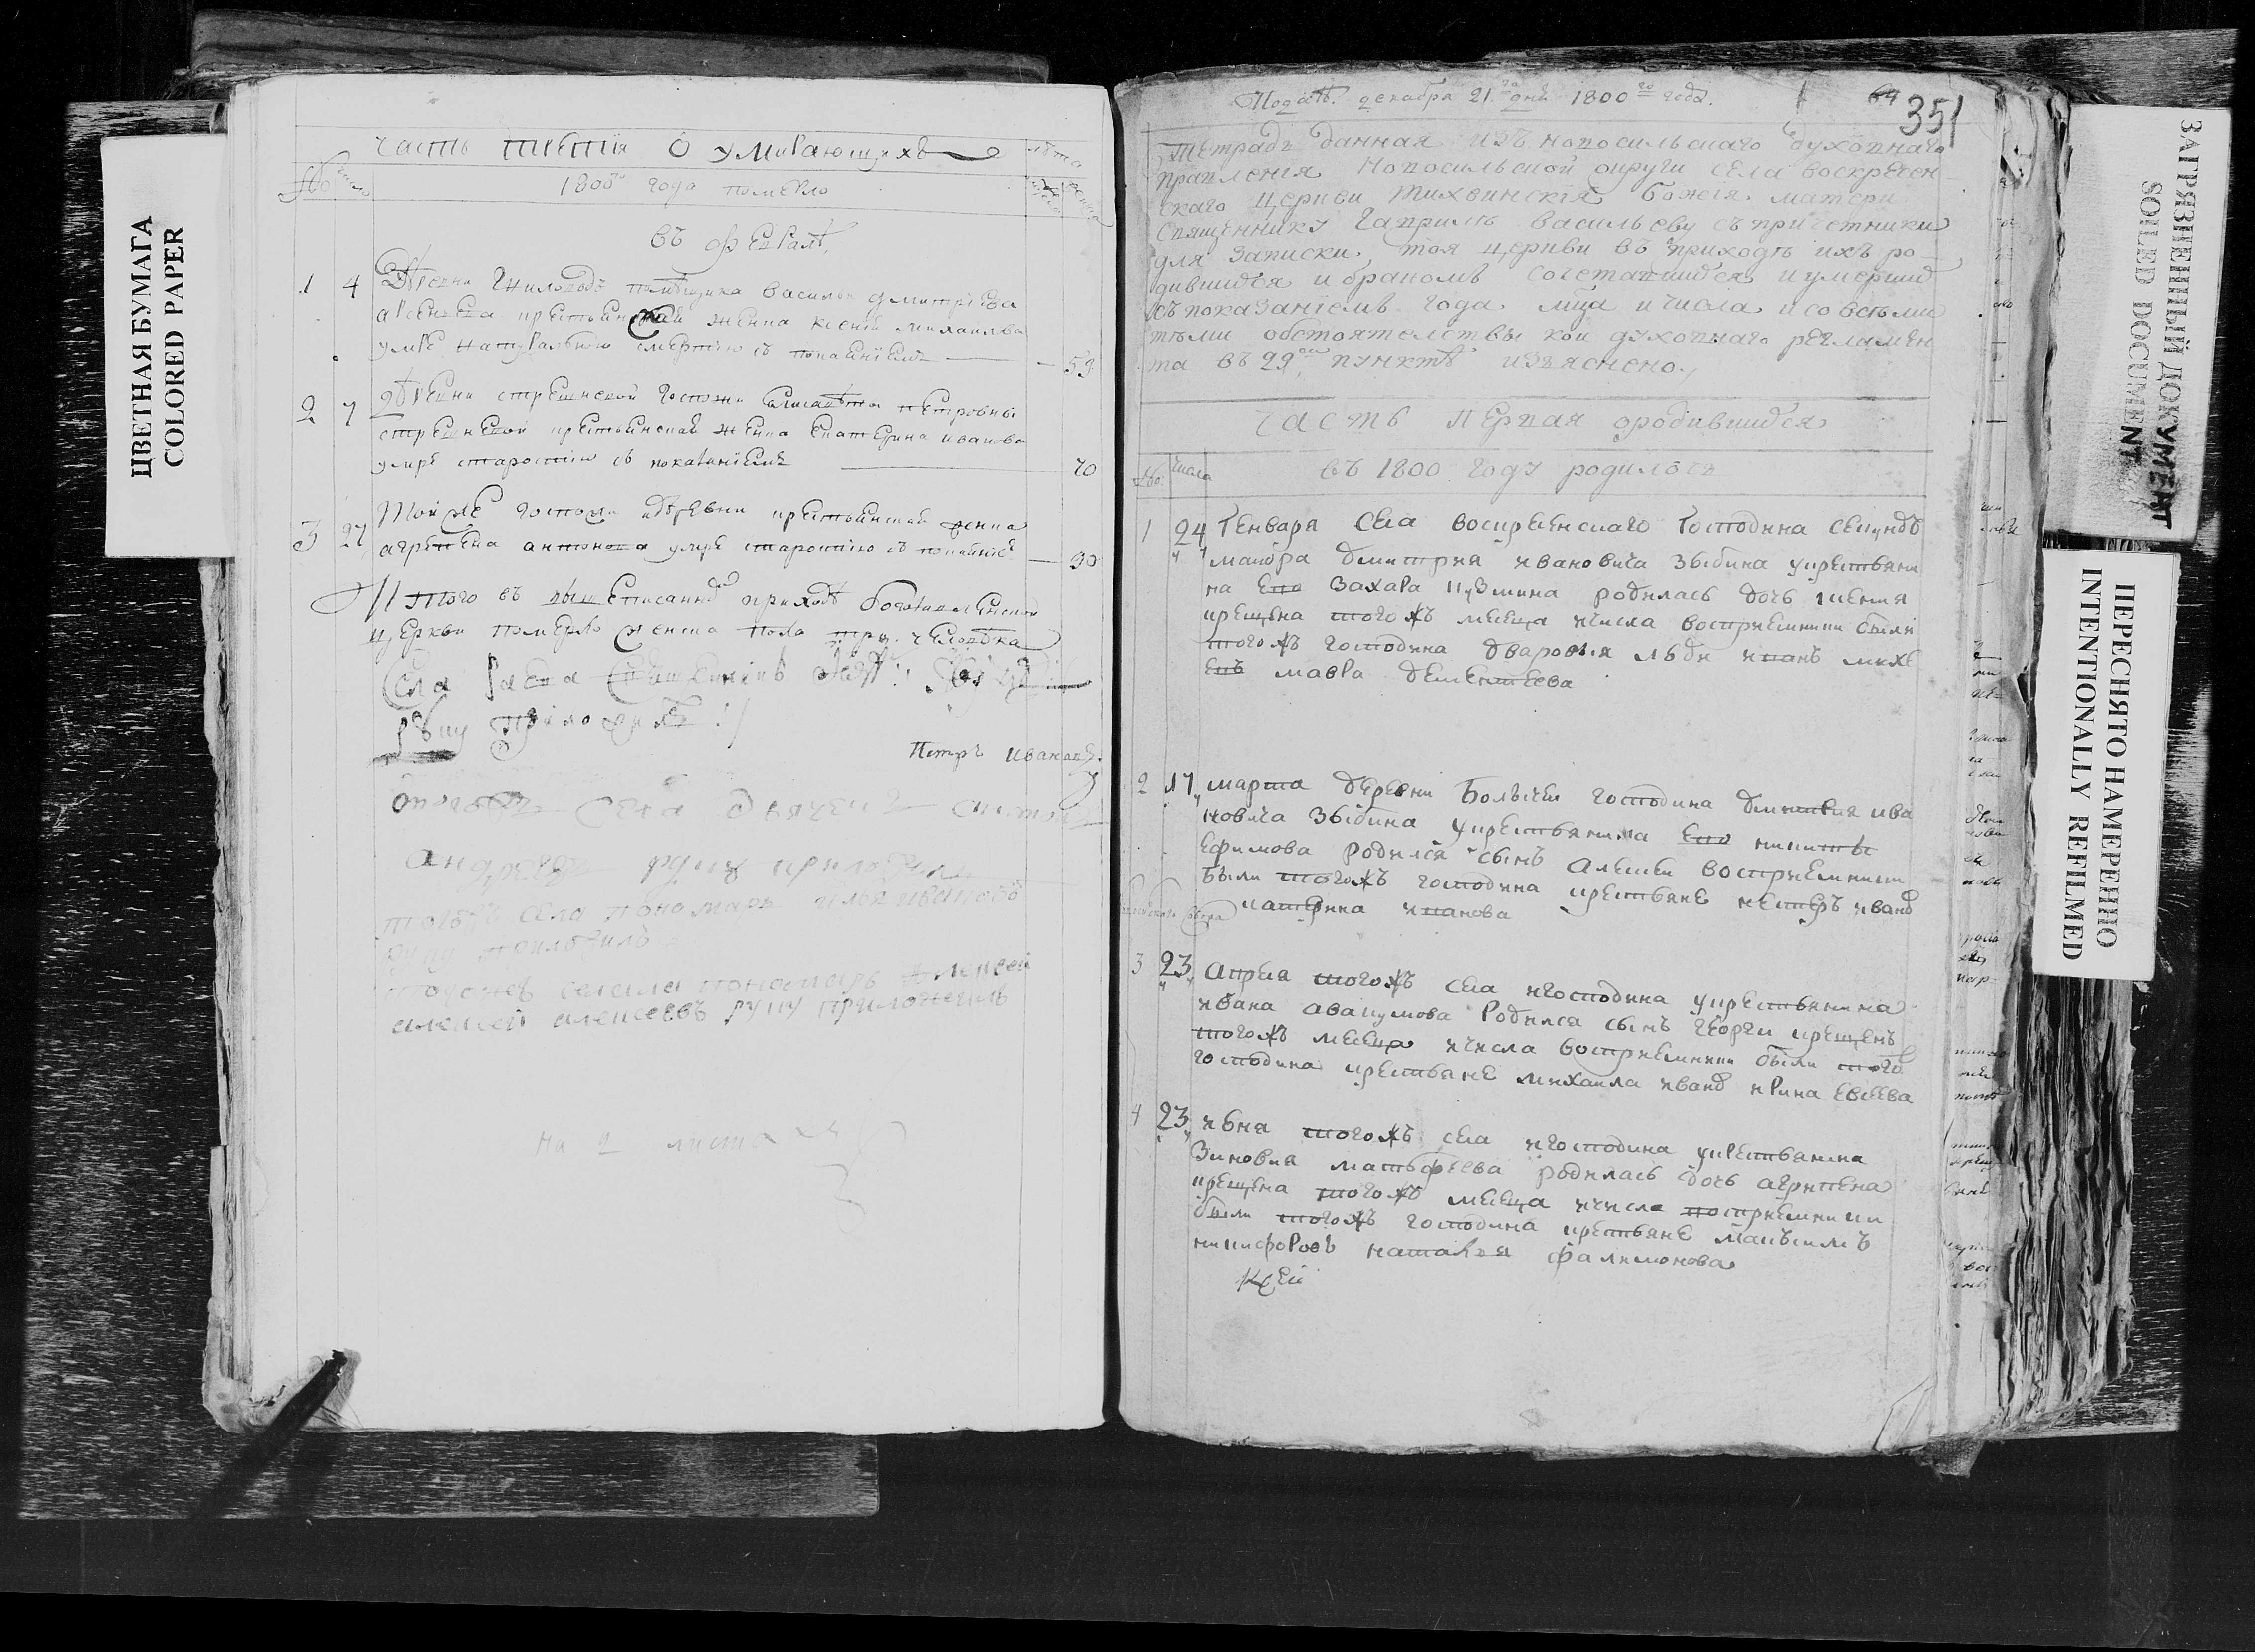 ЦВЕТНАЯ БУМАГА
COLORED PAPER
часть третїя о умирающихъ
лѣта
число
1800го года померло
въ февралѣ
1 4 Деревни помѣщика василья дмитріева
арсеньева крестьянской жена ксенія михаилва
умре натуральною смертію съ покаеніемъ 59
2 7 Деревни стрешневой госпожи елисавѣты петровны
стрешневой крестьянской жена екатерина иванова
умре старостію съ покаяніемъ 70
3 27 Той же госпожи и деревни крестьянской жена
агрепена антонова умре старостію съ 90
Итого въ вышеписанно приходѣ богоявленской
церкви померло женска пола три человѣка
Села священникъ
руку приложилъ
Петръ Иванов
тогожъ села дьячекъ
андреевъ руку приложилъ
тогожъ села пономарь илья ивановъ
руку приложилъ
тогожъ села пономарь
алексей алексеевъ руку приложилъ
на 2 листахъ
Податъ. декабря 21го дня 1800го года.
64
351
Тетрадь данная изъ новосильскаго духовнаго
правленія Новосильской округи села воскресен
скаго церкви тихвинскія божія матери
священнику гаврилѣ васильеву съ причетники
для записки тоя церкви въ приходѣ ихъ ро
дившихся и бракомъ сочетавшихся и умерших
съ показаніемъ года мца и числа и со всѣми
тѣми обстоятелствы кои духовнаго регламен
та въ 29ом пунктѣ изъяснено
часть первая о родившихся
числа
въ 1800 году родилось
1 24 Генваря села воскресенскаго Господина секундъ
маиора дмитрия ивановича зыбина укрестьяни
на ево захара кузмина родилась дочь
крещена тогожъ месеца ичисла восприемники были
тогожъ господина дваровыя люди иванъ михе
евъ мавра дементеева
2 17 марта деревни господина дмитрия ива
новича зыбина укрестьянина ево никиты
ефимова родился сынъ алексеи восприемники
были тогожъ господина крестьяне иванов
катерина иванова
3 23 апреля тогожъ села игосподина укрестьянина
ивана авакумова родился сынъ георги крещенъ
тогожъ месеца ичисла восприемники были того
господина крестьяне михаила иванов ирина евсеева
4 23 июня тогожъ села игосподина укрестьянина
зиновия матьфеева родилась дочь агрипена
крещена тогожъ месеца ичисла восприемники
были тогожъ господина крестьяне максимъ
никифоровъ наталья фалимонова
ЗАГРЯЗНЕННЫЙ ДОКУМЕНТ
SOILED DOCUMENT
ПЕРЕСНЯТО НАМЕРЕННО
INTENTIONALLY REFILMED